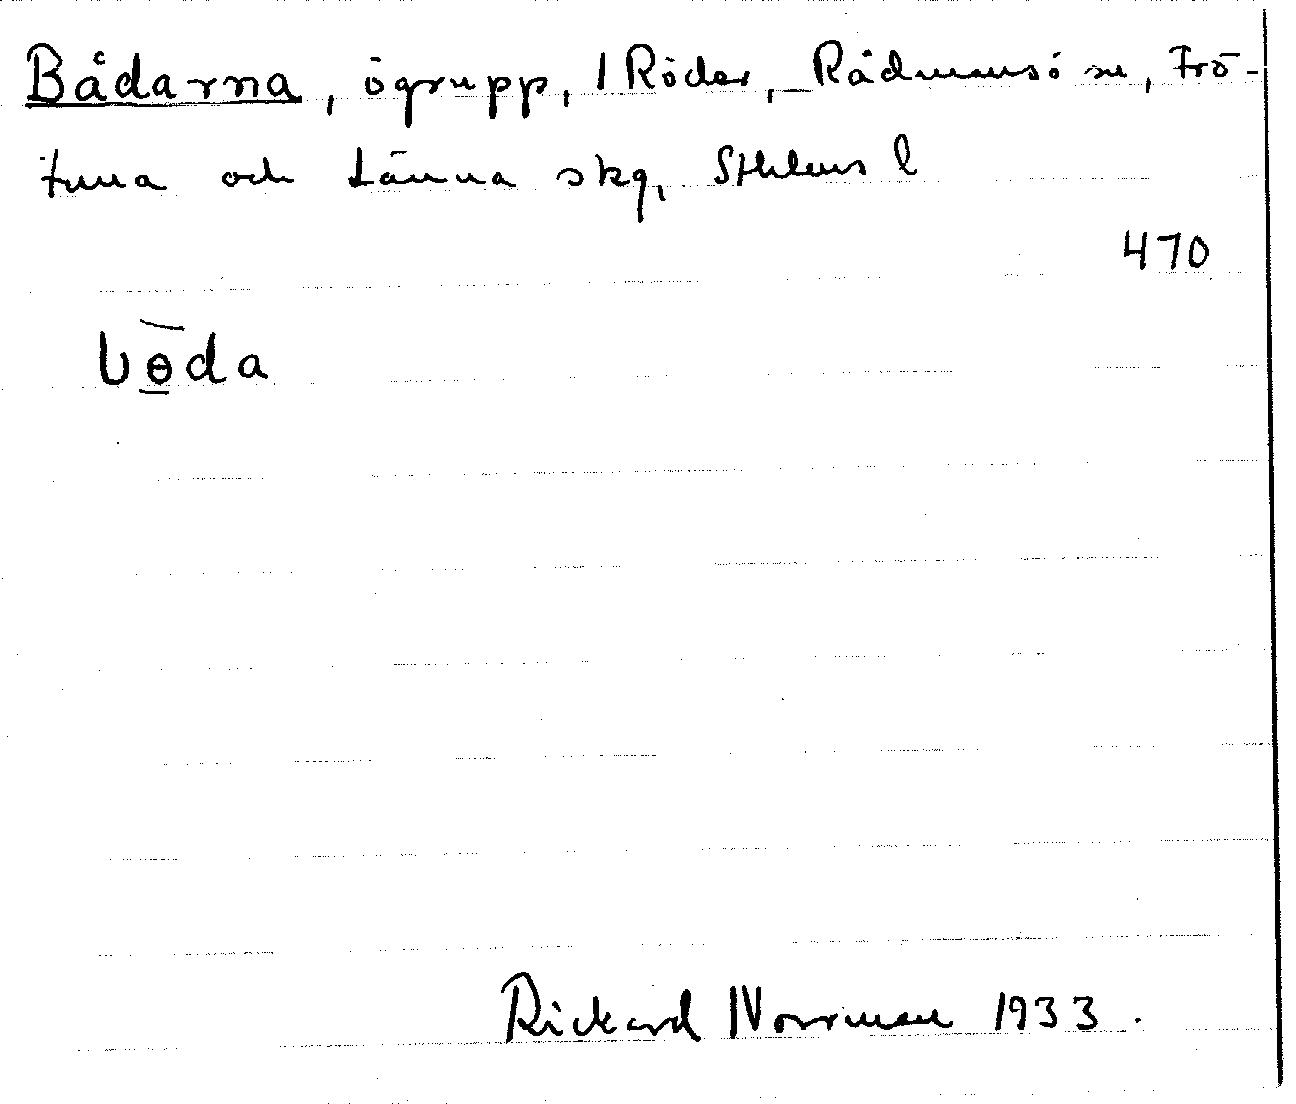 Bådarna, ögrupp, I Röder, Rådmansö sn, Frö-
tuna och Länna skg, Sthlms l
470
bɵ̠̄da
Rickard Norrman 1933.